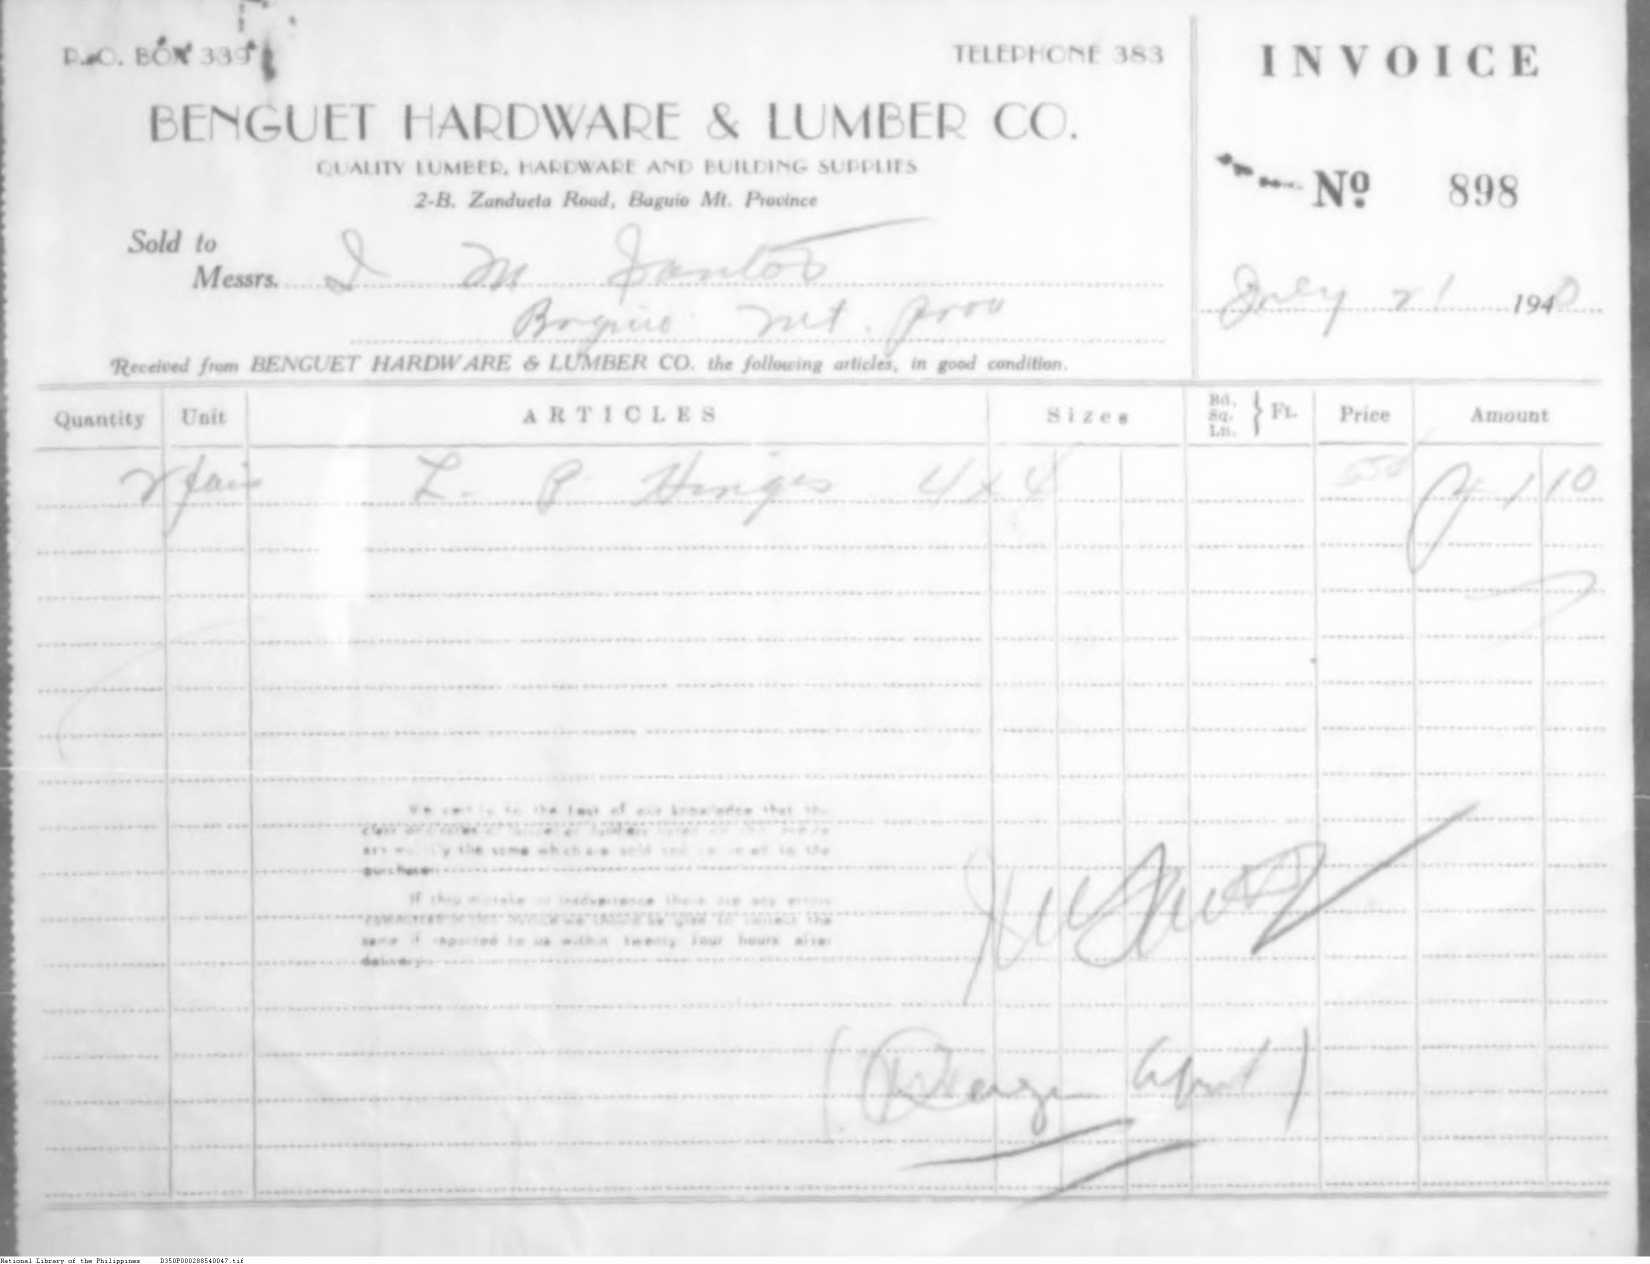 P.O. BOX 339
TELEPHONE 383
INVOICE
BENGUET HARDWARE & LUMBER CO.
QUALITY LUMBER, HARDWARE AND BUILDING SUPPLIES
2-B. Zandueta Road, Baguio Mt. Province
Nº 898
Sold to
Messrs. I M Santos
Baguio Mt. prov
July 21 1940
Received from BENGUET HARDWARE & LUMBER CO. the following articles, in good condition.
Quantity Unit ARTICLES Sizes Bd. Sq. Ln. } Ft. Price Amount
2 pair L. P. Hinges 4 x 4 .550 ₱ 1 10
We to the best of our knowledge that the
class
are the same which are sold to the
purchaser
If thru mistake or inadvertence there are any errors
committed in this invoice we should be glad to correct the
same if reported to us within twenty four hours after
delivery.
National Library of the Philippines D350P000288540047.tif